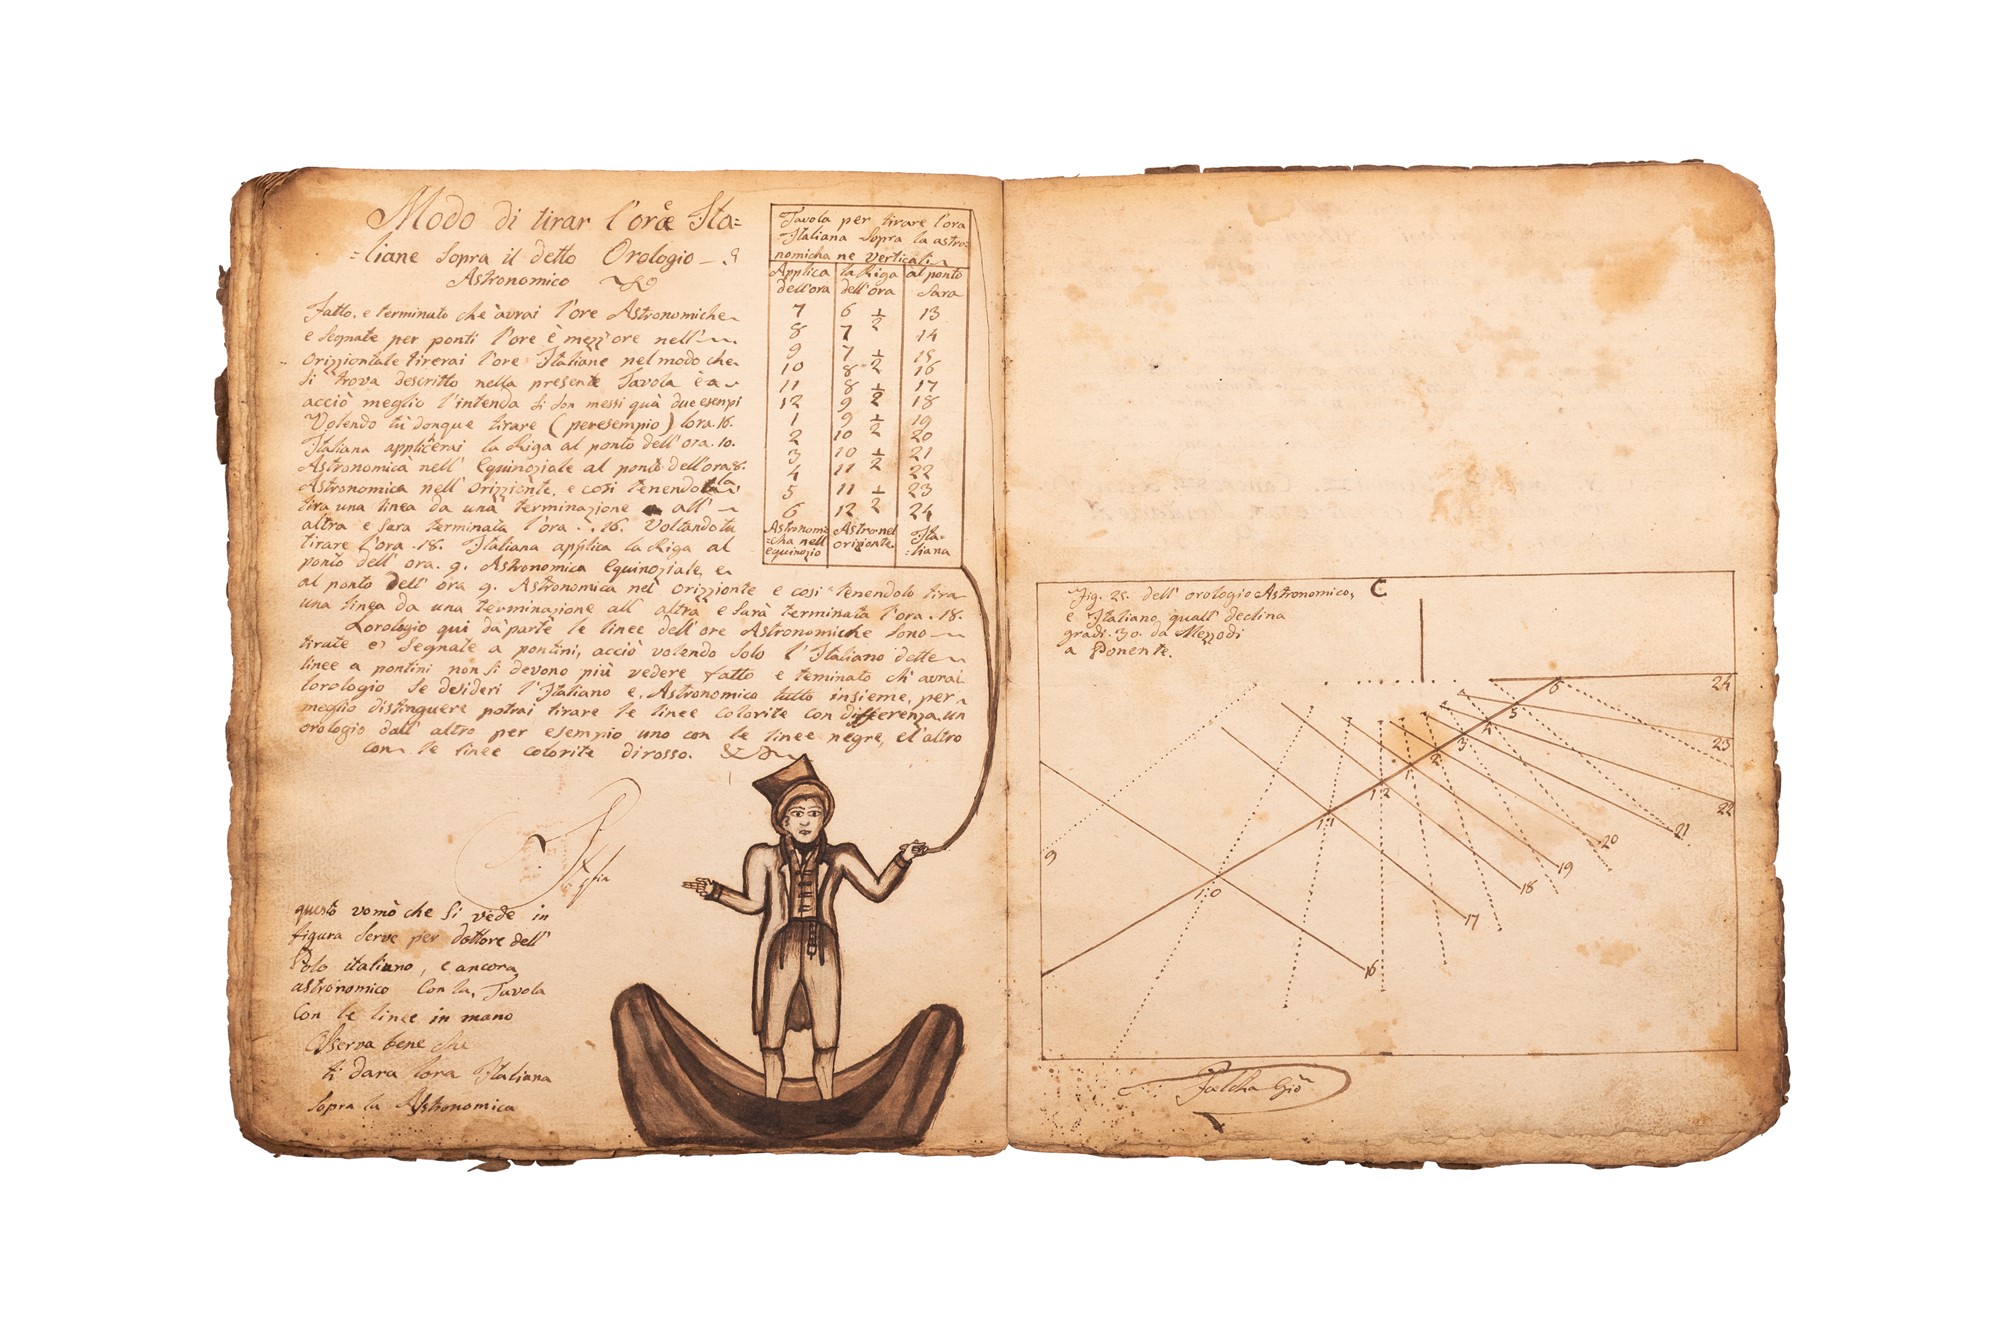 Modo di tirar l'oræ Ita=
=liane sopra il detto Orologio
Astronomico
Fatto, e terminato che avrai l'ore Astronomiche
e segnate per ponti l'ore è mezz'ore nell'
orizziontale tirerai l'ore Italiane nel modo che
si trova descritto nella presente Tavola è a
acciò meglio l'intenda si son messi quà due esenpi
Volendo tù donque tirare (peresempio) lora.16.
Italiana applicherai la Riga al ponto dell'ora.10.
Astronomicà nell' Equinoziale al ponto dell'ora 8.
Astronomica nell' Orizzionte, e cosi tenendola
tira una linea da una terminazione all'
altra e sara terminata l'ora .16. Voltando tu
tirare l'ora .18. Italiana applica la Riga al
ponto dell' ora. 9. Astronomica Equinoziale, e
al ponto dell' ora 9. Astronomica nel orizzionte e cosi tenendolo tira
una linea da una terminazione all' altra e sarà terminata l'ora .18.
Lorologio qui dà partè le linee dell'ore Astronomiche sono
tirate e segnate a pontini, acciò volendo solo l'Italiano dette
linee a pontini non si devono più vedere fatto e teminato ch'avrai
lorologio se desideri l'Italiano e Astronomico tutto insieme, per
meglio distinguere potrai tirare le linee colorite con differenza un
orologio dall' altro per esempio uno con le linee negre, el'altro
con le linee colorite dirosso.
Tavola per tirare l'ora
Italiana sopra la astro=
nomicha ne Verticali
Applica la Riga al ponto
dell'ora dell'ora sara
7 6 1/2 13
8 7 14
9 7 1/2 15
10 8 16
11 8 1/2 17
12 9 18
1 9 1/2 19
2 10 20
3 10 1/2 21
4 11 22
5 11 1/2 23
6 12 24
Astronomi=
=cha nell
equinozio
Astro nel
orizionte
Ita=
=liana
questo vomo che si vede in
figura serve per dottore dell'
Polo italiano, e ancora
astronomico Con la Tavola
Con le linee in mano
Osserva bene che
ti dara lora Italiana
sopra la Astronomica
Fig. 25. dell' orologio Astronomico,
e Italiano quall' declina
gradi.30. da Mezzodi
a Ponente.
C
6
24
5
4
23
3
2
1
22
12
21
11
20
19
9
18
10
17
16
Gio